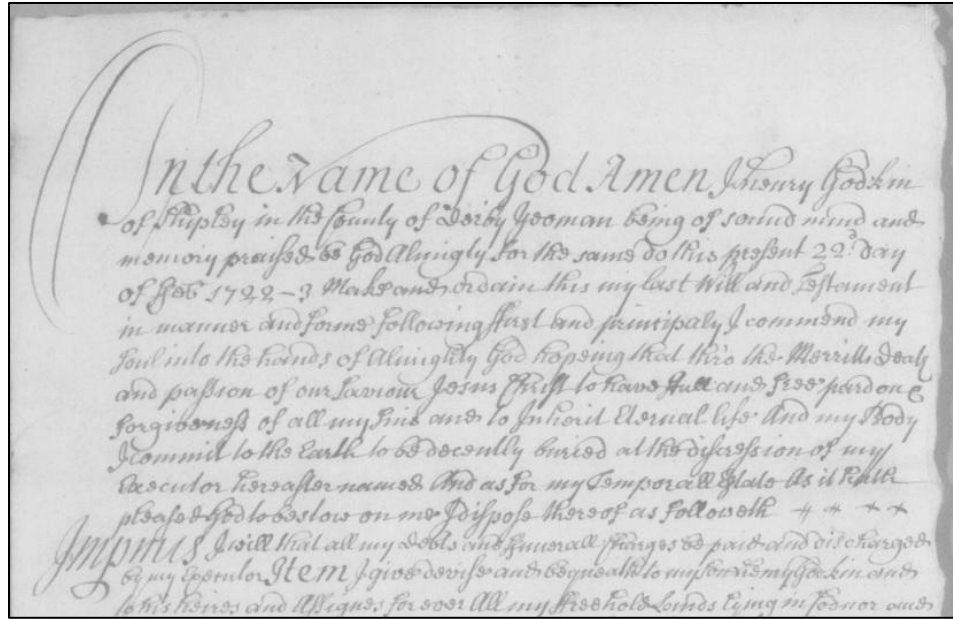 In the Name of God Amen I henry Godkin
of Shipley in the County of Derby Yeoman being of sound mind and
memory praised be God Almigly for the same do this present 22d. Day
of Feb 1722-3 Make and ordain this my last Will and Testament
in manner and forme following ffirst and principaly I commend my
soul into the hands of Almighty God hopeing that thro the Merrills Death
and passion of our saviour Jesus Christ to have ffull and free pardon &
forgiveness of all my sins and to Inherit Eternal life And my Body
I commit to the Earth to be decently buried at the discression of my
Executor hereafter named And as for my Temporall Estate As it hath
pleased God to bestow on me I dispose thereof as followeth
Imprius I will that all my Debts and ffunerall Charges be paid and discharged
by my Executor Item I give devise and bequeath to my son Godkin and
to his heires and Assignes for ever All my ffreehold Lands lying in Codnor and